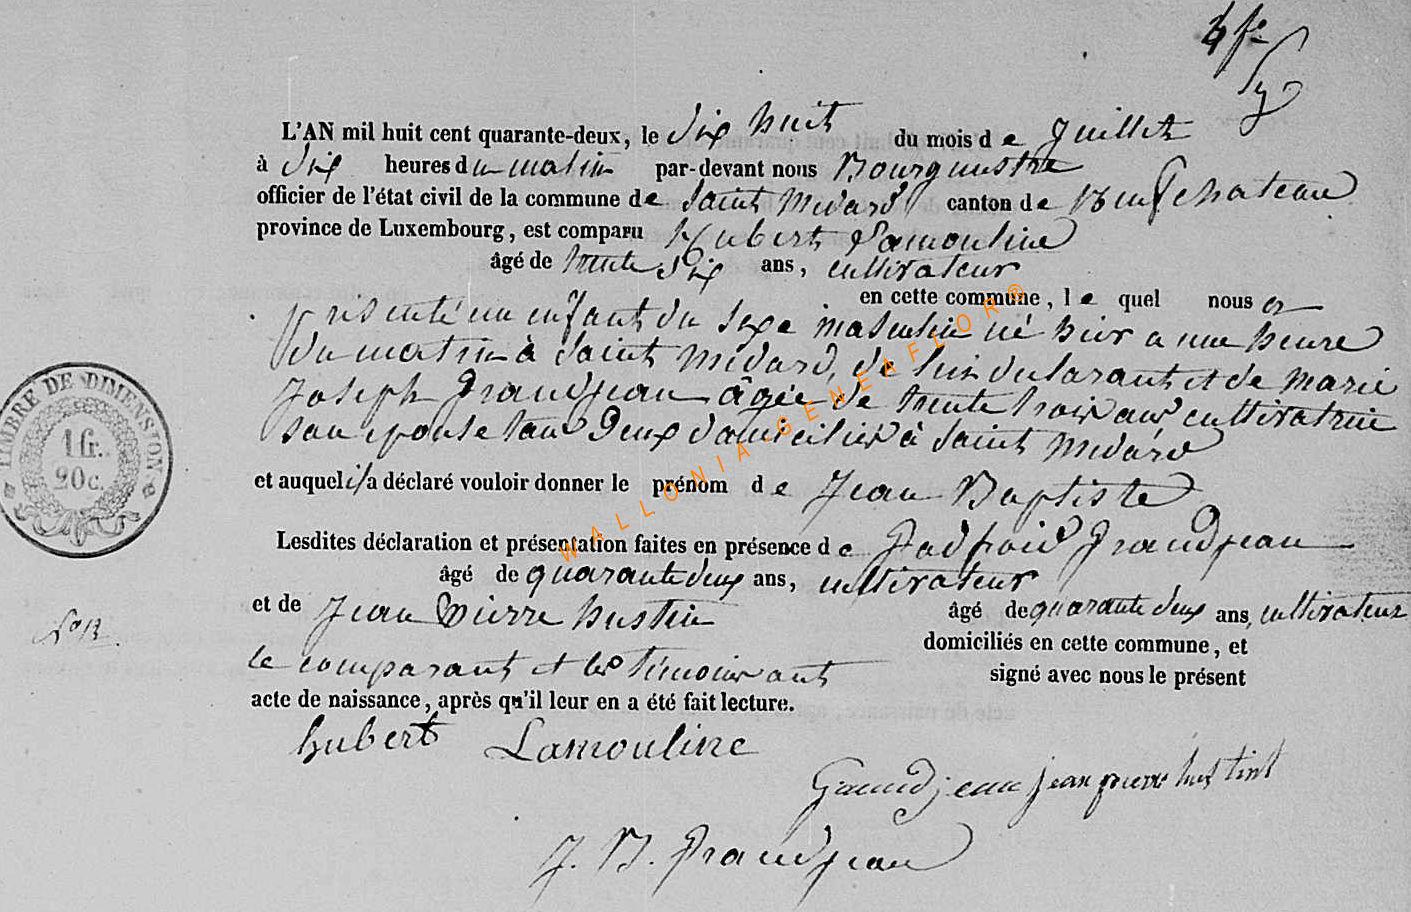 4 f.
L'AN mil huit cent quarante-deux, le dix huit du mois de Juillet
à dix heures du matin par-devant nous Bourgmestre
officier de l'état civil de la commune de Saint Médard canton de Neufchateau
province de Luxembourg, est comparu Hubert Lamouline
âgé de trente six ans, cultivateur
en cette commune, lequel nous a
présenté un enfant du sexe masculin né hier a une heure
du matin à Saint Médard, de lui déclarant et de Marie
Joseph Grandjean âgée de trente trois ans cultivatrice
son épouse tous deux domiciliés à Saint Médard
et auquel il a déclaré vouloir donner le prénom de Jean Baptiste
Lesdites déclaration et présentation faites en présence de Godfroid Grandjean
âgé de quarante deux ans, cultivateur
et de Jean Pierre hustin âgé de quarante deux ans, cultivateur
domiciliés en cette commune, et
le comparant et les témoins ont signé avec nous le présent
acte de naissance, après qu'il leur en a été fait lecture.
hubert Lamouline
Grandjean jean pierre hustint
J. B. Grandjean
No 13.
TIMBRE DE DIMENSION
1 fr.
20 c.
WALLONIA GENEAFLOR®